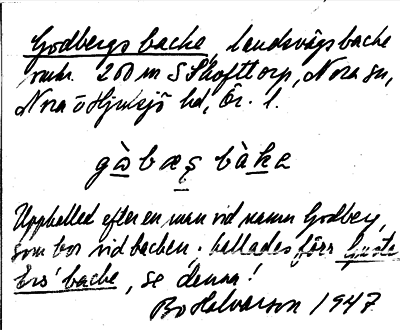 Godbergs backe, landsvägsbacke
omkr. 200 m S Skofttorp, Nora sn,
Nora o Hjulsjö hd, Ör. l.
gòbæṣ bàkə
Uppkallad efter en man vid namn Godberg,
som bor vid backen; kallades förr
Ers' backe, se denna!
Bo Halvarson 1947